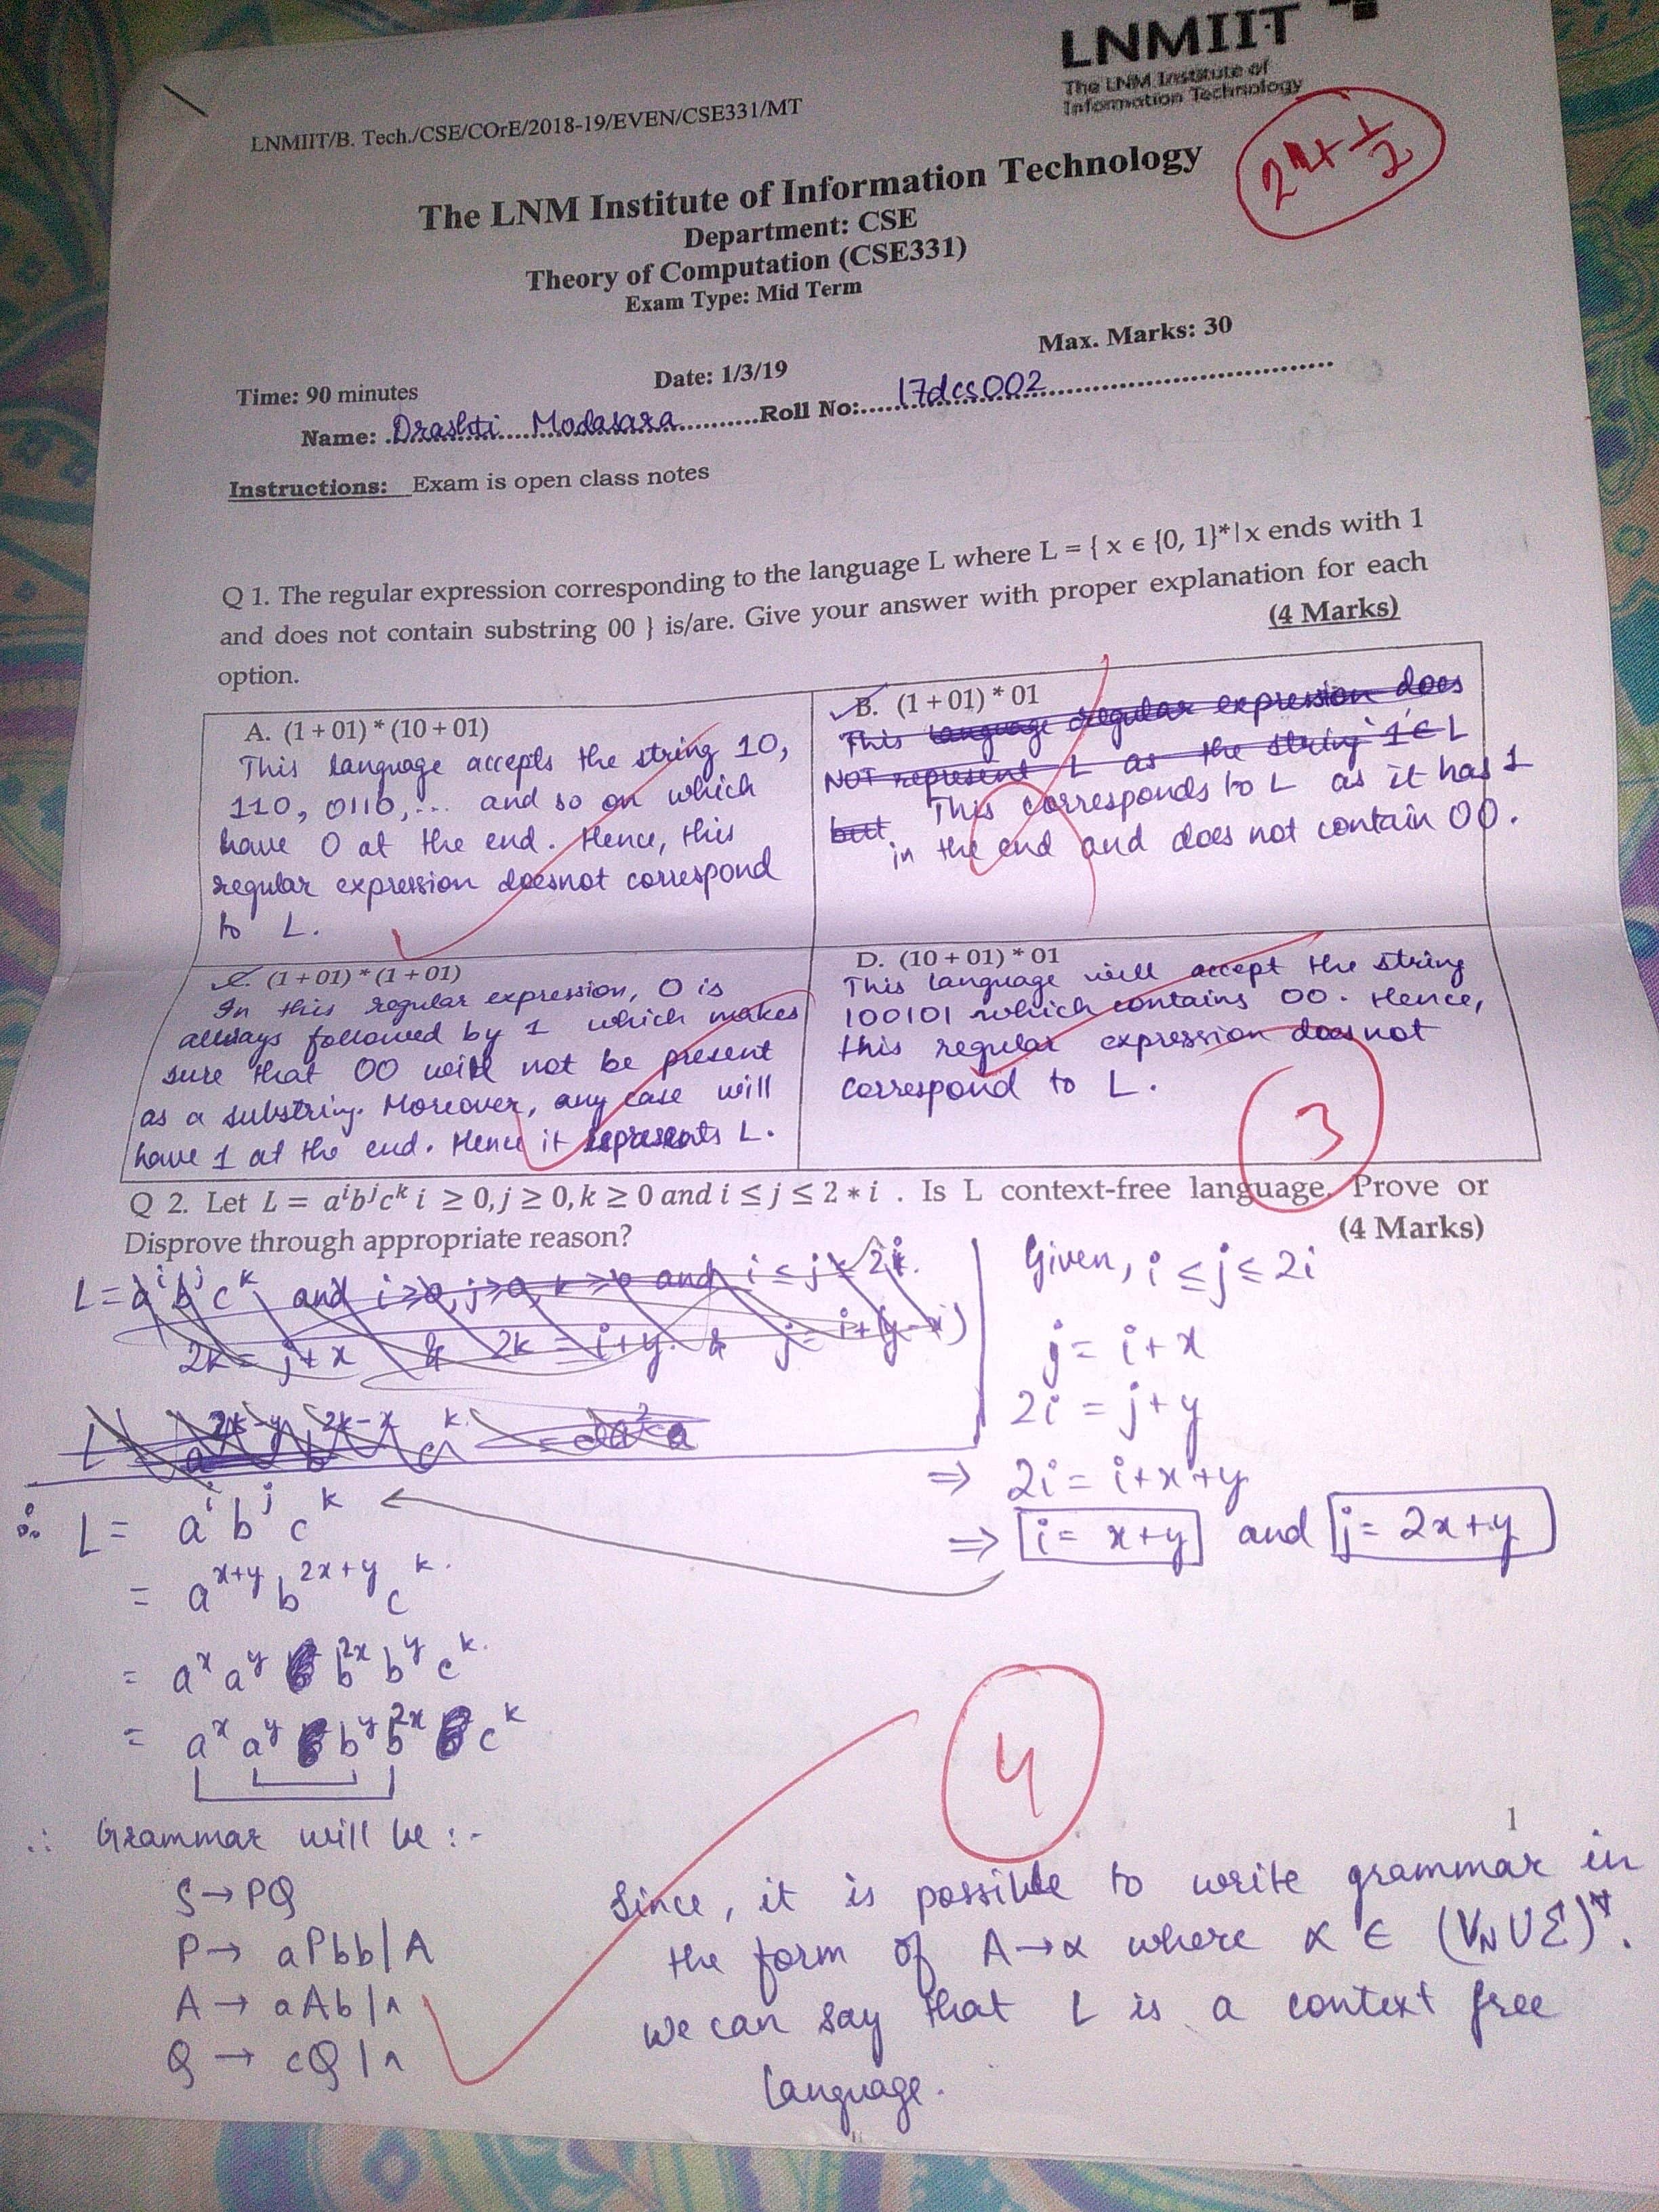 LNMIIT
The LNM Institute of
Information Technology
LNMIIT/B. Tech./CSE/COrE/2018-19/EVEN/CSE331/MT
The LNM Institute of Information Technology
Department: CSE
Theory of Computation (CSE331)
Exam Type: Mid Term
Time: 90 minutes Date: 1/3/19 Max. Marks: 30
Name: Drashti Modasara Roll No: 17dcs002
Instructions: Exam is open class notes
Q 1. The regular expression corresponding to the language L where L = { x ϵ {0, 1}*|x ends with 1
and does not contain substring 00 } is/are. Give your answer with proper explanation for each
option. (4 Marks)
A. (1 + 01) * (10 + 01)
This language accepts the string 10,
110, 0110,... and so on which
have 0 at the end. Hence, this
regular expression doesnot correspond
to L.
B. (1 + 01) * 01
This language regular expression does
NOT represent L as the string 1 ∈ L
but This corresponds to L as it has 1
in the end and does not contain 00.
C. (1 + 01) * (1 + 01)
In this regular expression, 0 is
always followed by 1 which makes
sure that 00 will not be present
as a substring. Moreover, any case will
have 1 at the end. Hence it represents L.
D. (10 + 01) * 01
This language will accept the string
100101 which contains 00. Hence,
this regular expression doesnot
correspond to L.
3
Q 2. Let L = aⁱbʲcᵏ i ≥ 0, j ≥ 0, k ≥ 0 and i ≤ j ≤ 2 * i . Is L context-free language. Prove or
Disprove through appropriate reason? (4 Marks)
L = aⁱbʲcᵏ and i≥0, j≥0, k≥0 and i ≤ j ≤ 2i.
2k = j+x & 2k = i+y & j = i+(y-x)
Given, i ≤ j ≤ 2i
j = i + x
2i = j + y
⇒ 2i = i+x+y
⇒ i = x+y and j = 2x+y
∴ L = aⁱ bʲ cᵏ
= a^(x+y) b^(2x+y) c^k.
= a^x a^y b^2x b^y c^k.
= a^x a^y b^y b^2x c^k
4
1
∴ Grammar will be :-
S → PQ
P → aPbb | A
A → aAb | ʌ
Q → cQ | ʌ
Since, it is possible to write grammar in
the form of A → α where α ∈ (V_N ∪ Σ)*.
we can say that L is a context free
language.